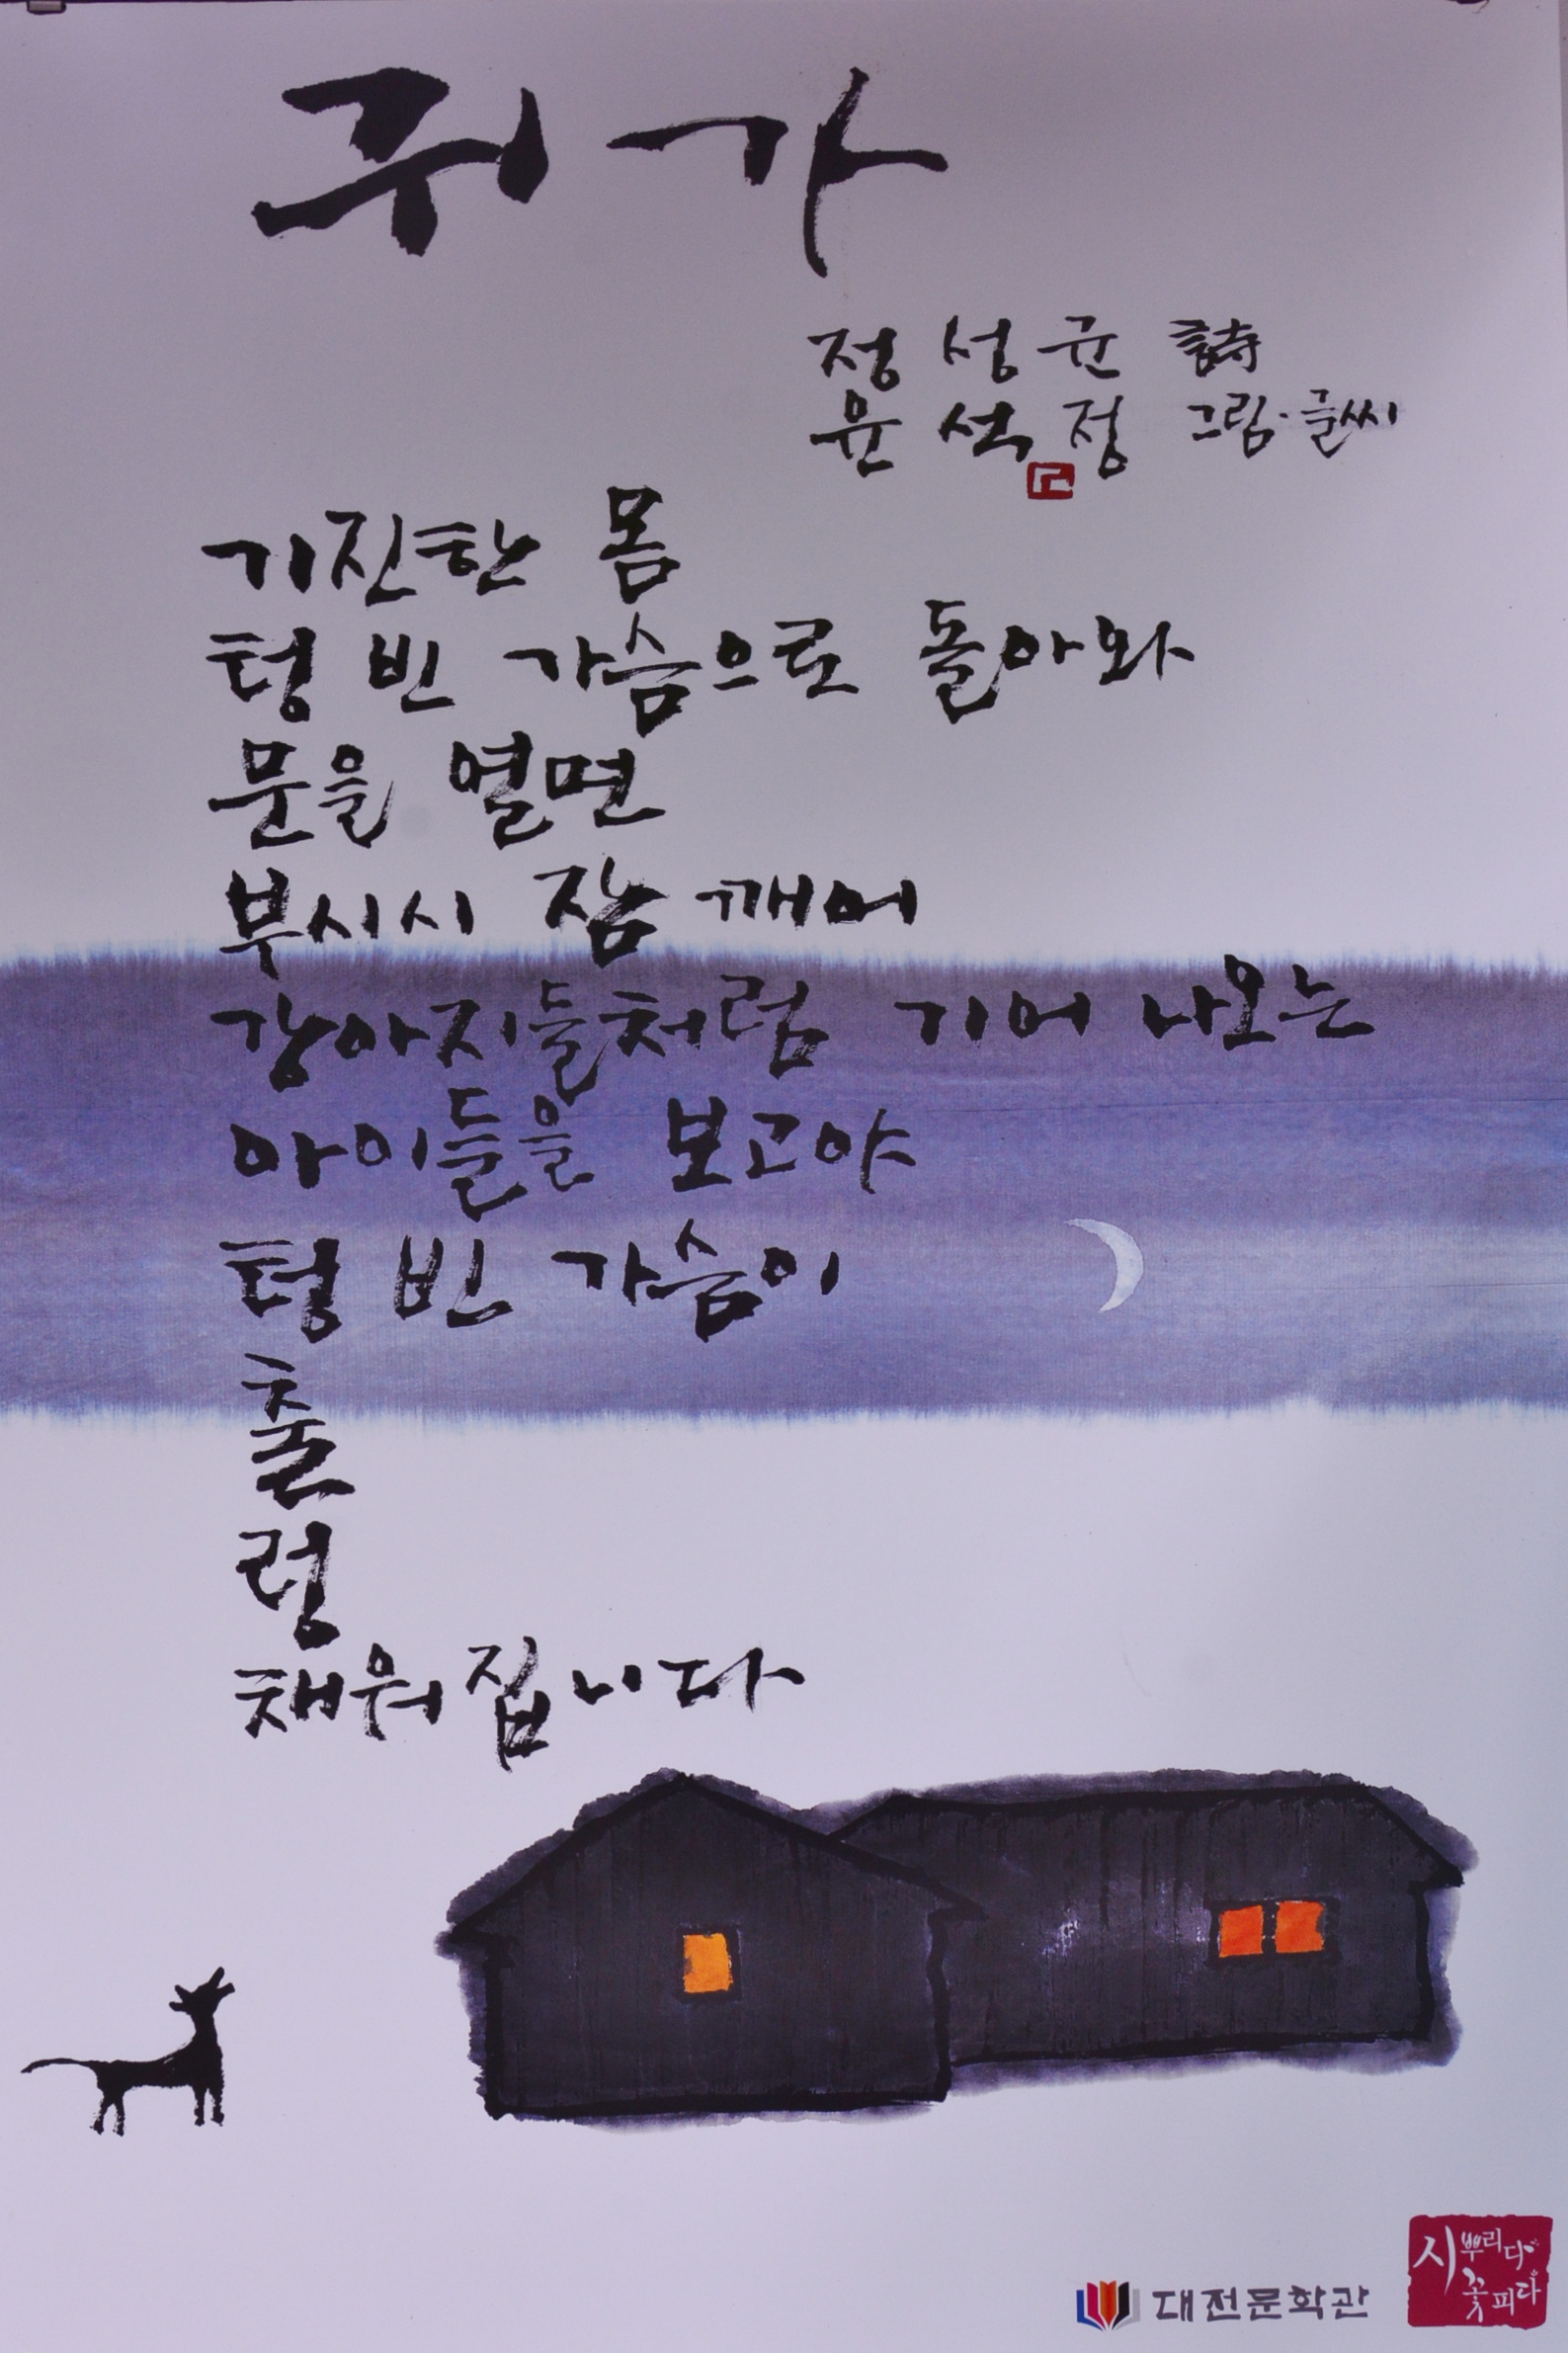 귀가
정성균 詩
윤석정 그림·글씨
기진한 몸
텅 빈 가슴으로 돌아와
문을 열면
부시시 잠 깨어
강아지들처럼 기어 나오는
아이들을 보고야
텅 빈 가슴이
출
렁
채워집니다
대전문학관
시 뿌리다
꽃피다